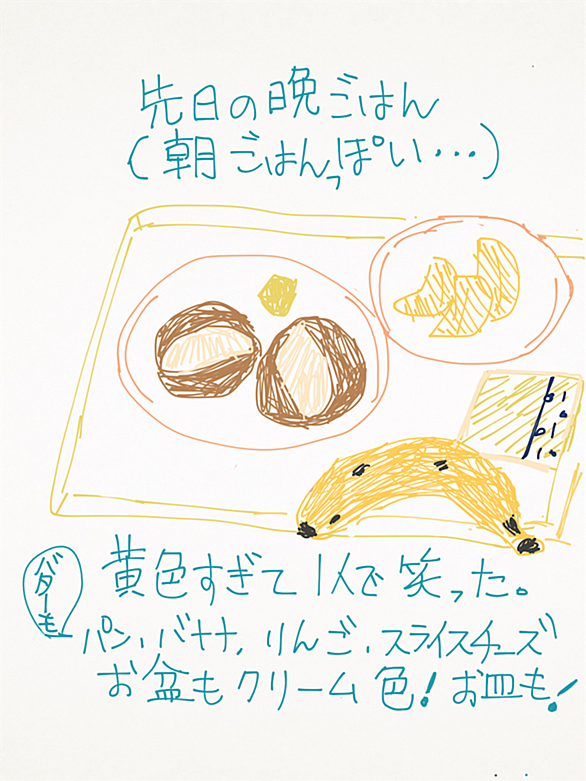 先日の晩ごはん
(朝ごはんっぽい…)
黄色すぎて1人で笑った。
バターも
パン、バナナ、りんご、スライスチーズ
お盆もクリーム色!お皿も!